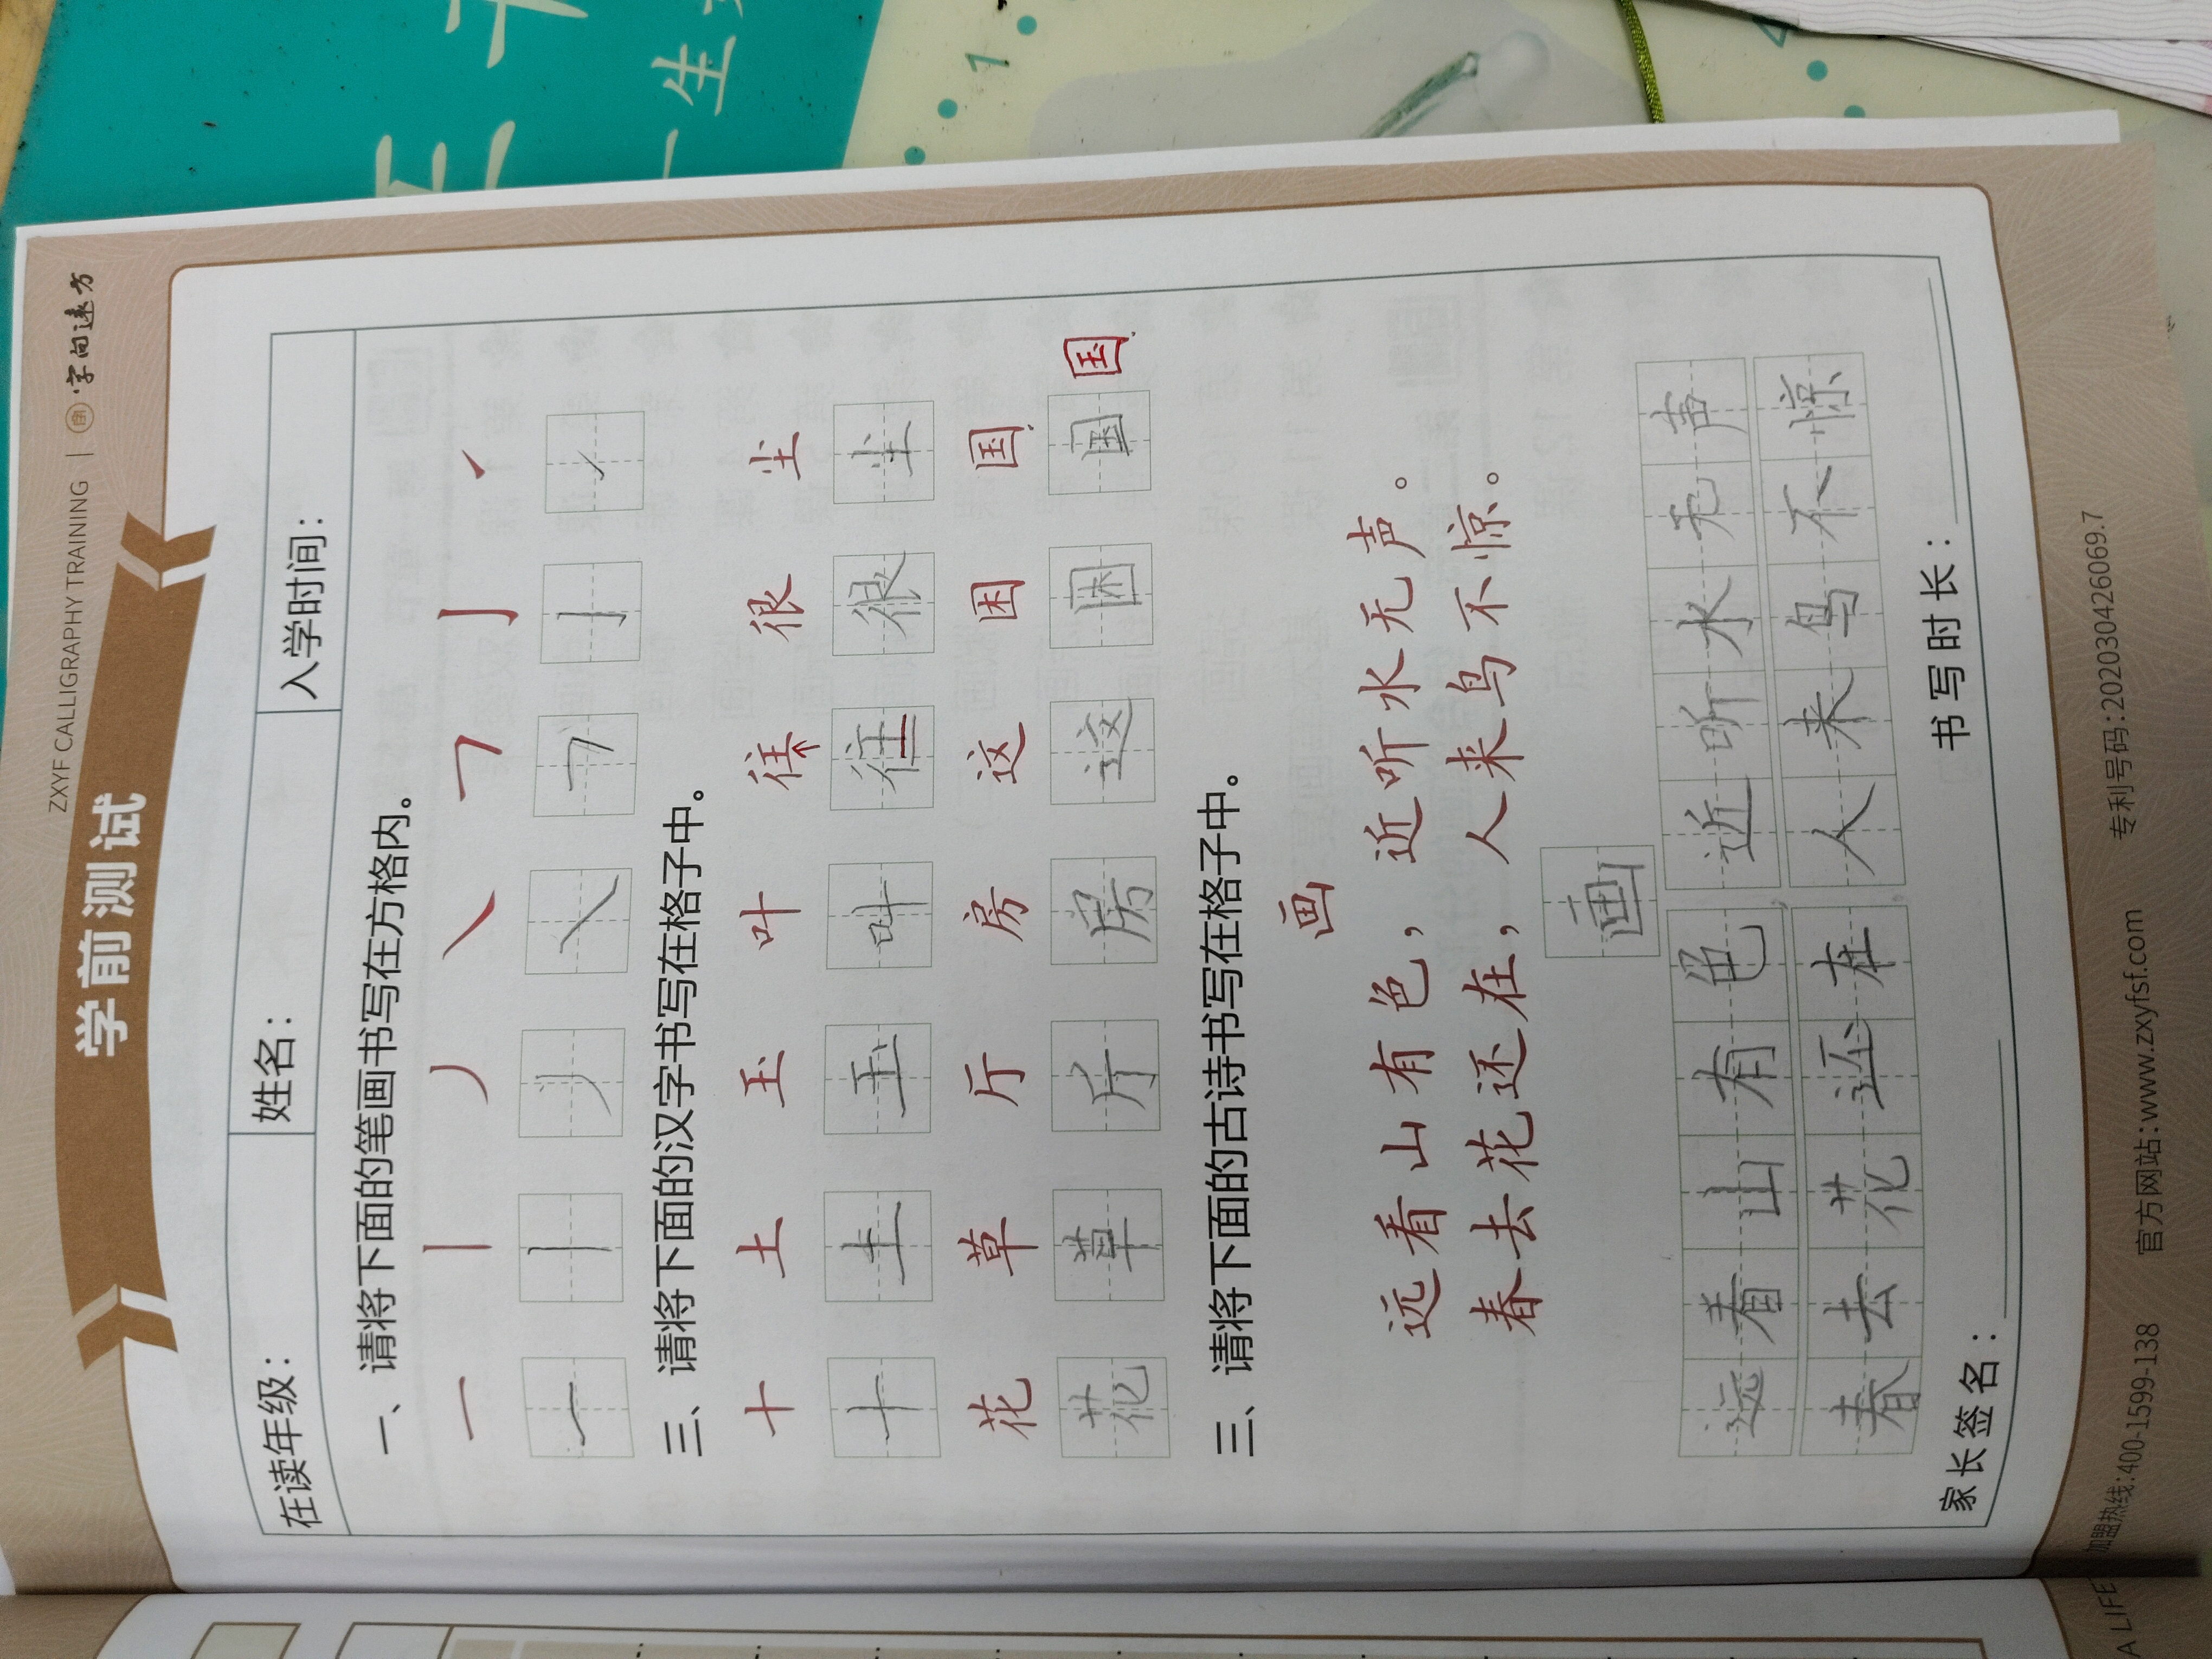 ZXYF CALLIGRAPHY TRAINING | 字向速方
学前测试
在读年级： 姓名： 入学时间：
一、请将下面的笔画书写在方格内。
一 丨 丿 ㇏ ㇕ 亅 丶
一 丨 丿 ㇏ ㇕ 亅 丶
三、请将下面的汉字书写在格子中。
十 土 玉 叶 往 很 尘
十 土 玉 叶 往 很 尘
花 草 斤 房 这 困 国
花 草 斤 房 这 困 国 国
三、请将下面的古诗书写在格子中。
画
远看山有色，近听水无声。
春去花还在，人来鸟不惊。
画
远看山有色，近听水无声
春去花还在。人来鸟不惊
家长签名： 书写时长：
加盟热线:400-1599-138 官方网站:www.zxyfsf.com 专利号码:2020304426069.7
A LIFE
生
1